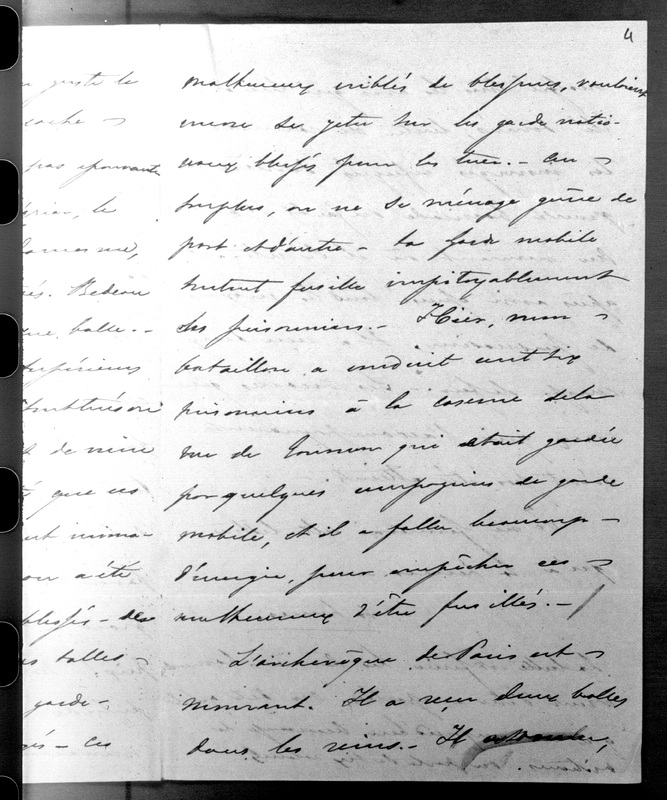 4
juste le
cache —
pas epouvante
le
Bedeau
balle. —
de mine
que ces
ont
on a été
blessés — des
balles
garde-
— ces
malheureux criblés de blessures, voulaient
encore se jeter sur les garde natio-
naux blessés pour les tuer. — Au
surplus, on ne se ménage guère de
part et d'autre — la garde mobile
surtout fusille impitoyablement
les prisonniers. — Hier, mon —
bataillon a conduit cent six
prisonniers à la caserne de la
rue de Tournon qui était gardée
par quelques compagnies de garde
mobile, et il a fallu beaucoup —
d'énergie, pour empêcher ces —
malheureux d'être fusillés. —
L'archevêque de Paris est —
mourant. Il a reçu deux balles
dans les reins. — Il